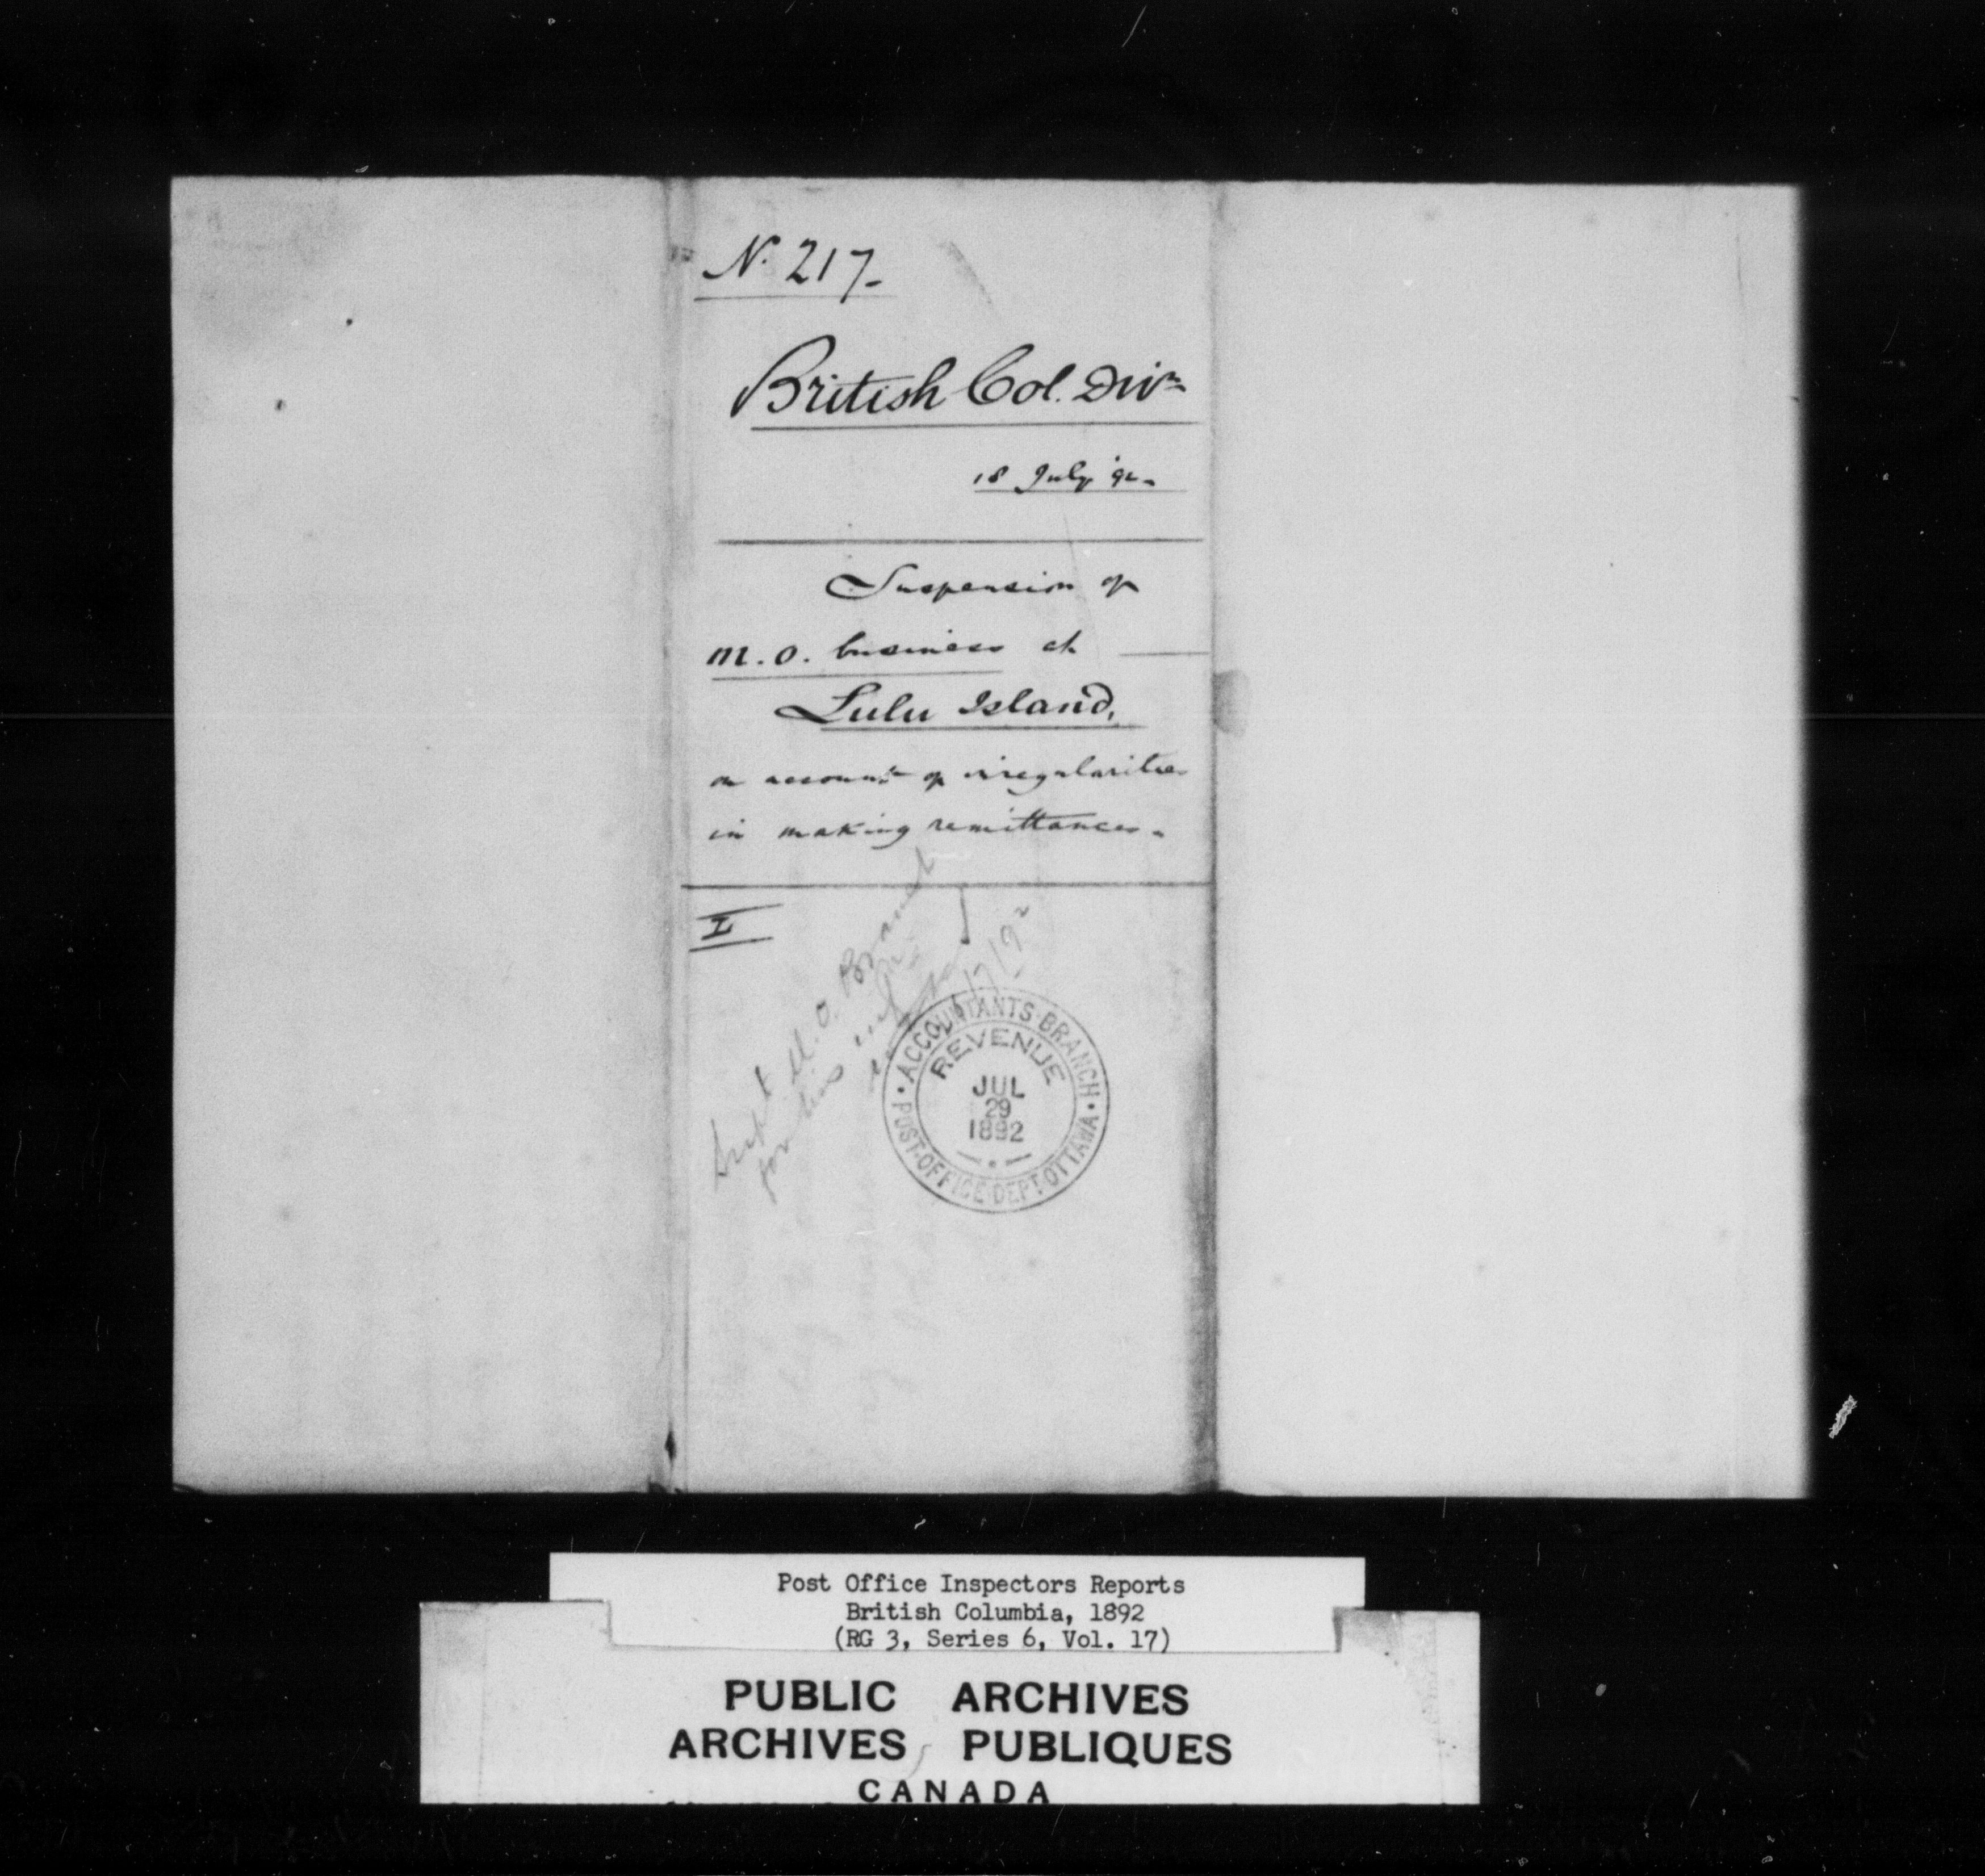 N. 217-
British Col. Divn
18 July '92-
Suspension of
M.O. business at
Lulu Island,
on account of irregularities
in making remittances-
I
Supt M.O. Branch
for his inf
/7/92
ACCOUNTANTS BRANCH
REVENUE
JUL
29
1892
POST OFFICE DEPT. OTTAWA
Post Office Inspectors Reports
British Columbia, 1892
(RG 3, Series 6, Vol. 17)
PUBLIC ARCHIVES
ARCHIVES PUBLIQUES
CANADA